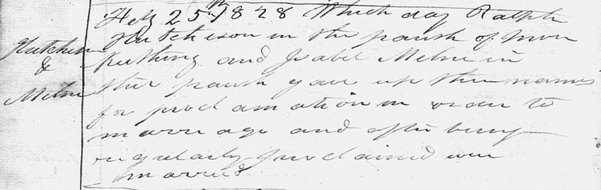 Feby 25th 1828 Which day Ralph
Hutcheson in the parish of Mon
Hutcheson
&
Milne
and Isabel Milne in
this parish gave up their names
for proclamation in order to
marriage and after being
regularly proclaimed were
married